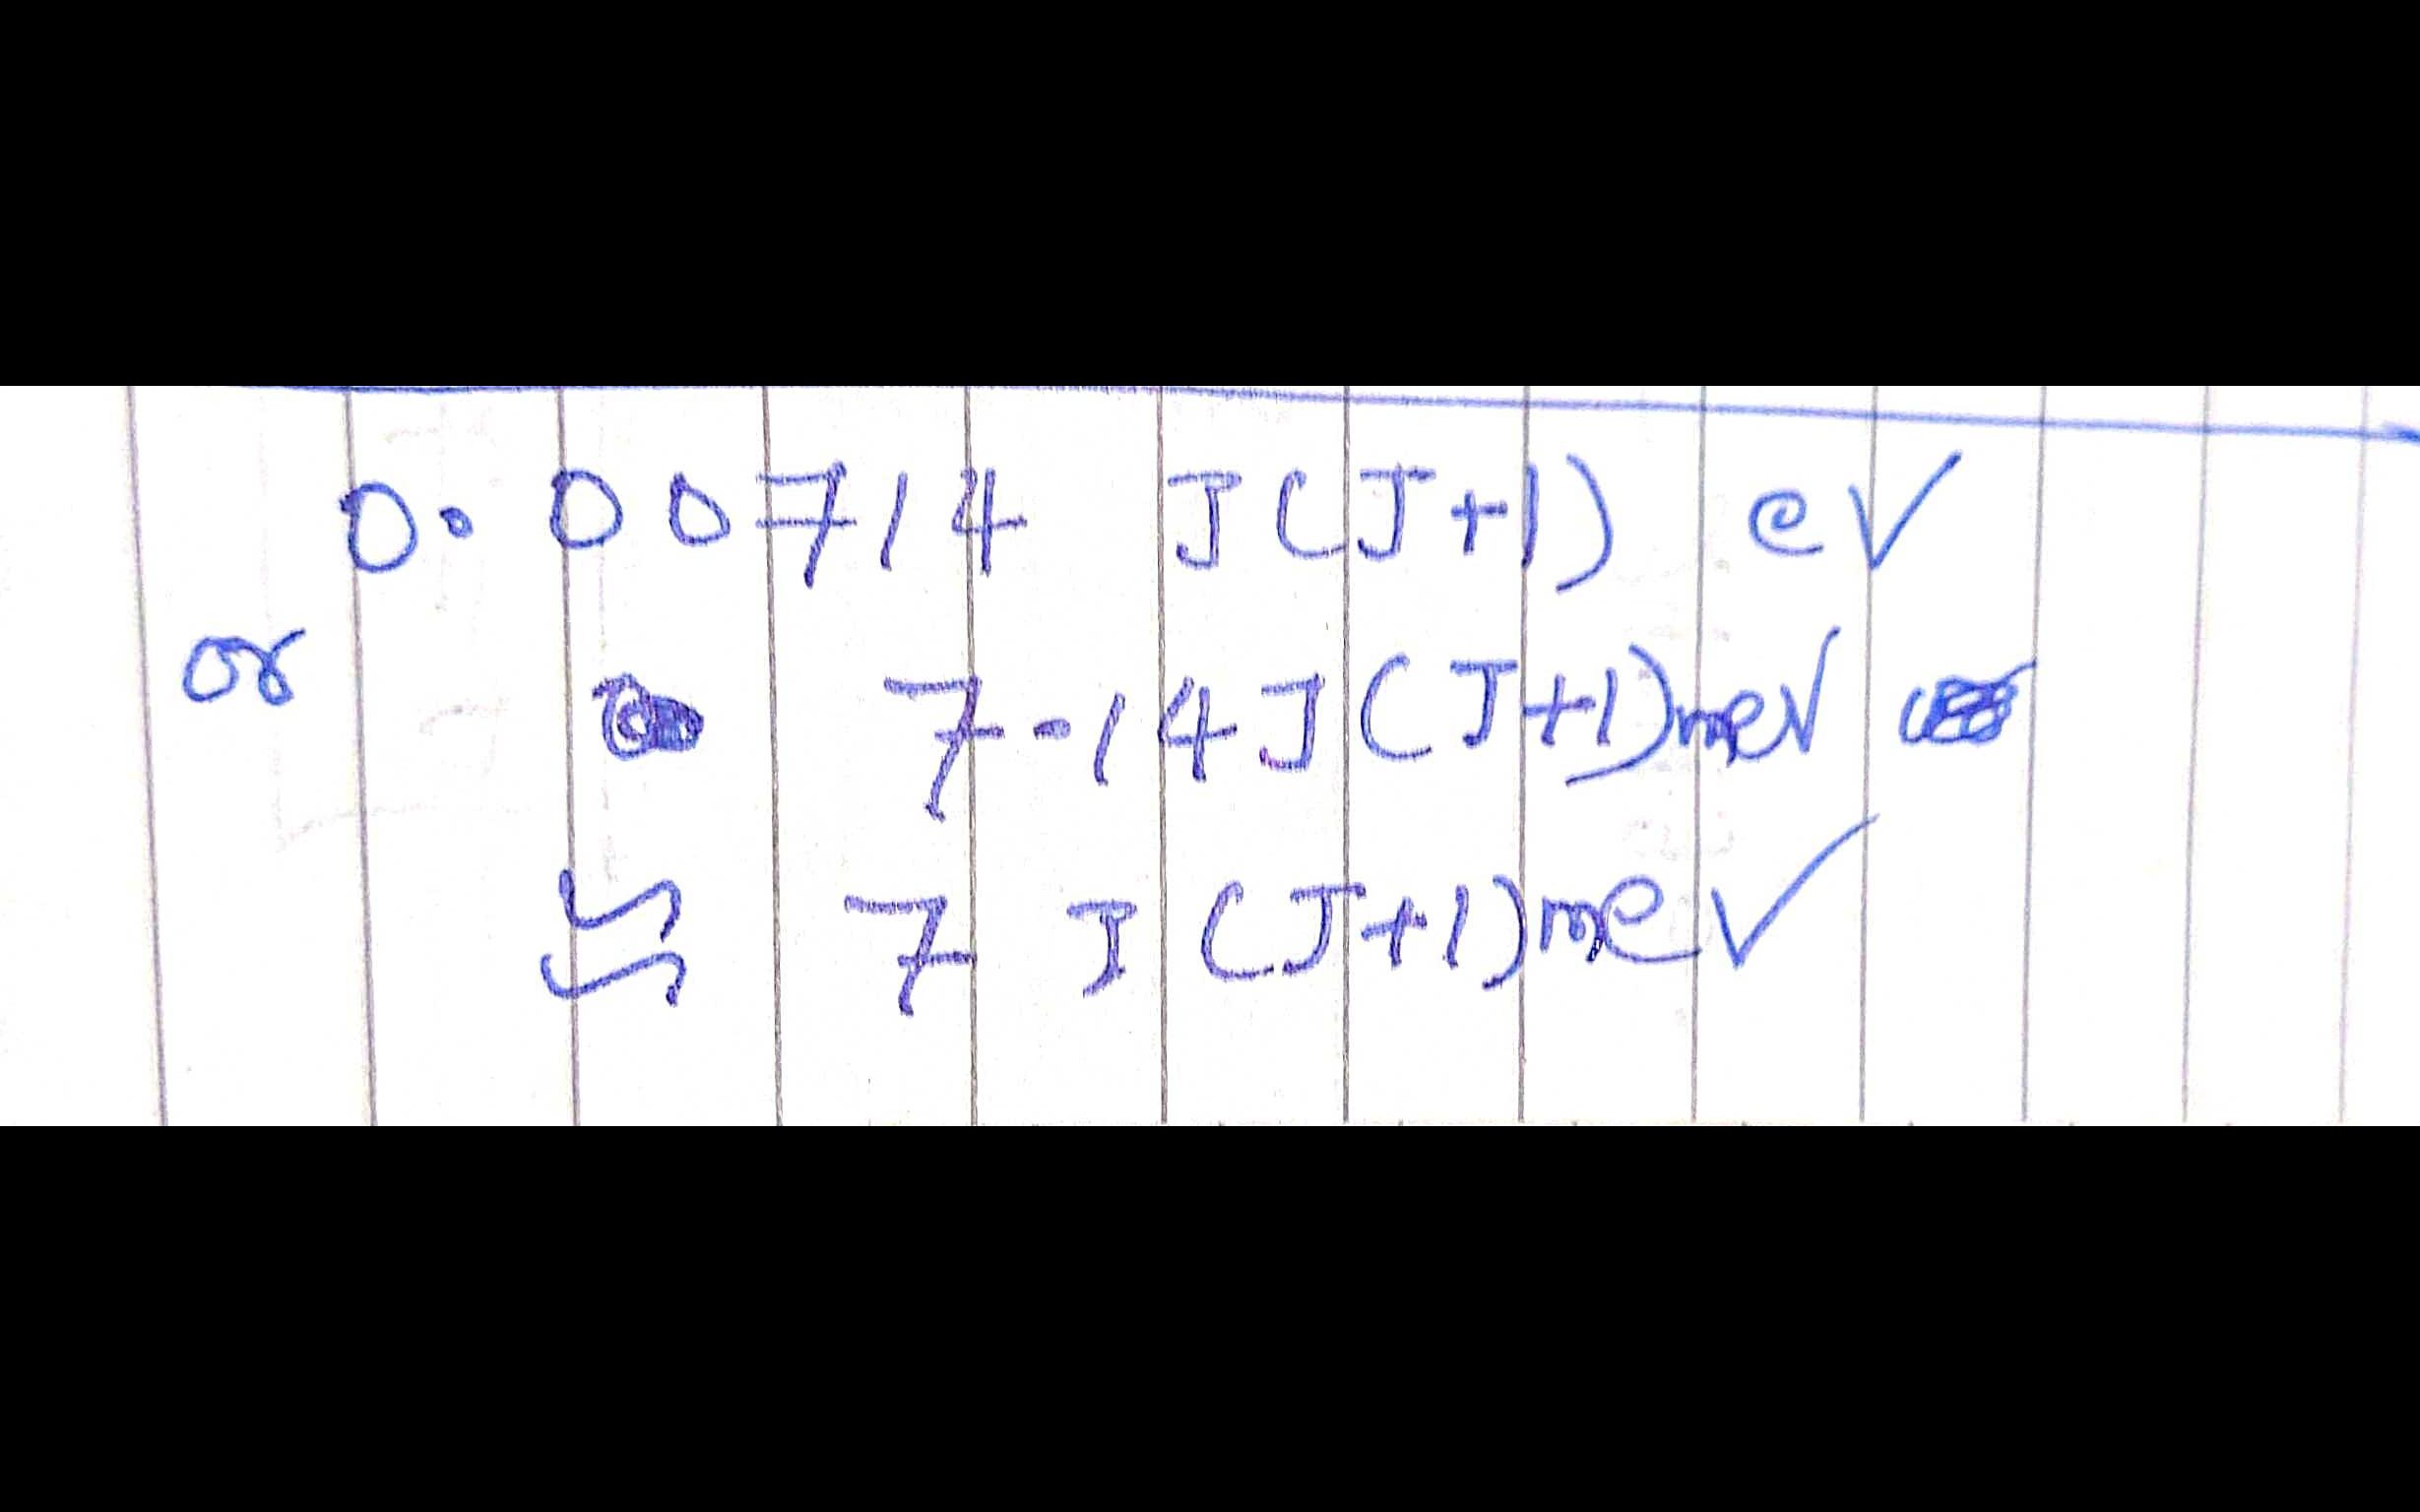 0.00714 J(J+1) eV
or 7.14 J(J+1) meV
≈ 7 J(J+1) meV